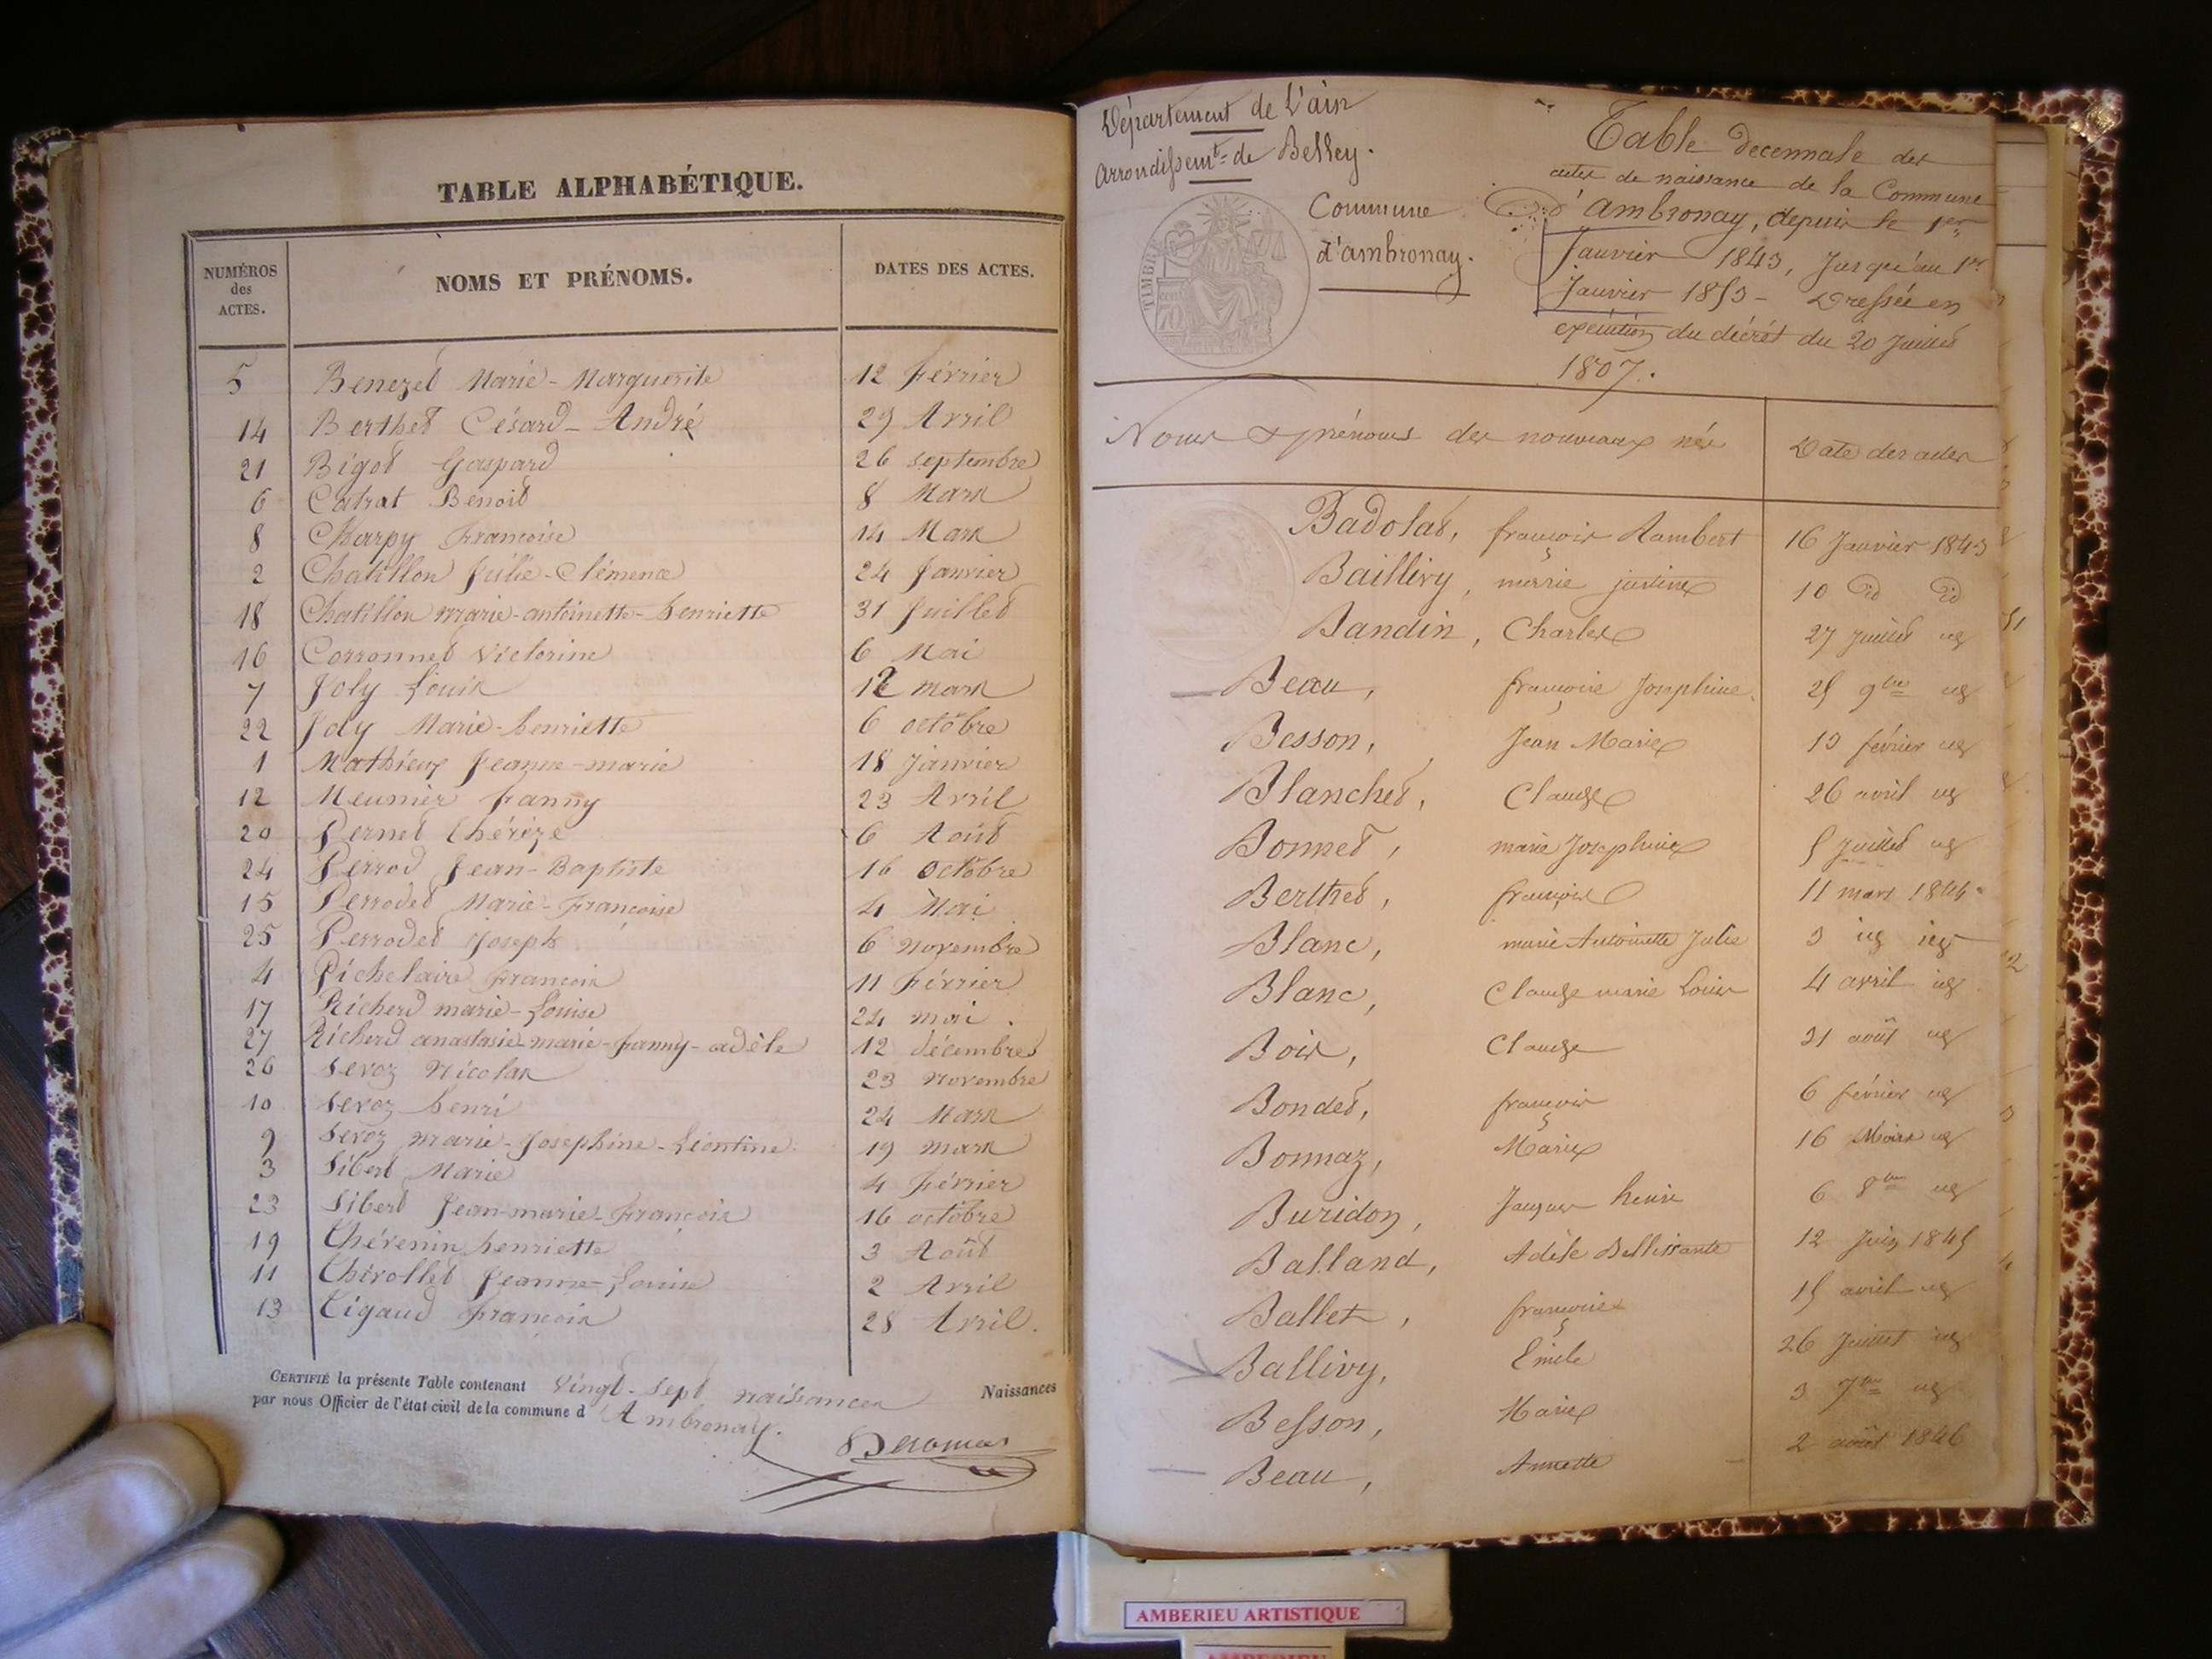 TABLE ALPHABÉTIQUE.
NUMÉROS des ACTES. NOMS ET PRÉNOMS. DATES DES ACTES.
5 Benezet Marie-Marguerite 12 Février
14 Berthet Césard-André 29 Avril
21 Bigot Gaspard 26 septembre
6 Catrat Benoit 8 Mars
8 Charpy Françoise 14 Mars
2 Chatillon Julie-Clémence 24 Janvier
18 Chatillon marie-antoinette-henriette 31 Juillet
16 Corronnet Victorine 6 Mai
7 Joly Louis 12 mars
22 Joly Marie-henriette 6 octobre
1 Mathieux Jeanne-marie 18 Janvier
12 Meunier fanny 23 Avril
20 Pernet thérèze 6 Août
24 Perrod Jean-Baptiste 16 Octobre
15 Perrodet Marie-Françoise 4 Mai
25 Perrodet Joseph 6 novembre
4 Pichelaire François 11 Février
17 Richerd marie-Louise 24 mai
27 Richerd anastasie-marie-fanny-adèle 12 décembre
26 Servoz Nicolas 23 novembre
10 Servoz henri 24 Mars
9 Servoz marie-Joséphine-Léontine 19 mars
3 Sibert Marie 4 Février
23 Sibert Jean-marie-François 16 octobre
19 Thévenin henriette 3 Août
11 Thivollet Jeanne-Louise 2 Avril
13 Tigaud François 28 Avril.
CERTIFIÉ la présente Table contenant Vingt-sept naissances Naissances
par nous Officier de l'état civil de la commune d'Ambronay.
Département de L'ain
arrondissemt de Belley.
Commune
d'ambronay.
TIMBRE
70
Table decennale des
actes de naissance de la Commune
d'ambronay, depuis le 1er
Janvier 1843, Jusqu'au 1er
Janvier 1853 - Dressée en
exécution du décrét du 20 Juillet
1807.
Noms & prénoms des nouveaux nés Date des actes
Badolat, françois Rambert 16 Janvier 1843
Baillivy, marie justine 10 do do
Bandin, Charles 27 juillet id
Beau, françoise Josephine 25 9bre id
Besson, Jean Marie 13 février id
Blanchet, Claude 26 avril id
Bonnet, marie Josephine 5 juillet id
Berthet, françois 11 mars 1844
Blanc, marie Antoinette Julie 3 id id
Blanc, Claude marie Louis 4 avril id
Bois, Claude 31 août id
Bondet, françois 6 février id
Bonnaz, Marie 16 Mars id
Buridon, Jacques henri 6 8bre id
Balland, Adèle Bellissante 12 Juin 1845
Ballet, françoise 15 avril id
Ballivy, Emile 26 Juillet id
Besson, Marie 3 7bre id
Beau, Annette 2 août 1846
AMBERIEU ARTISTIQUE
AMBERIEU